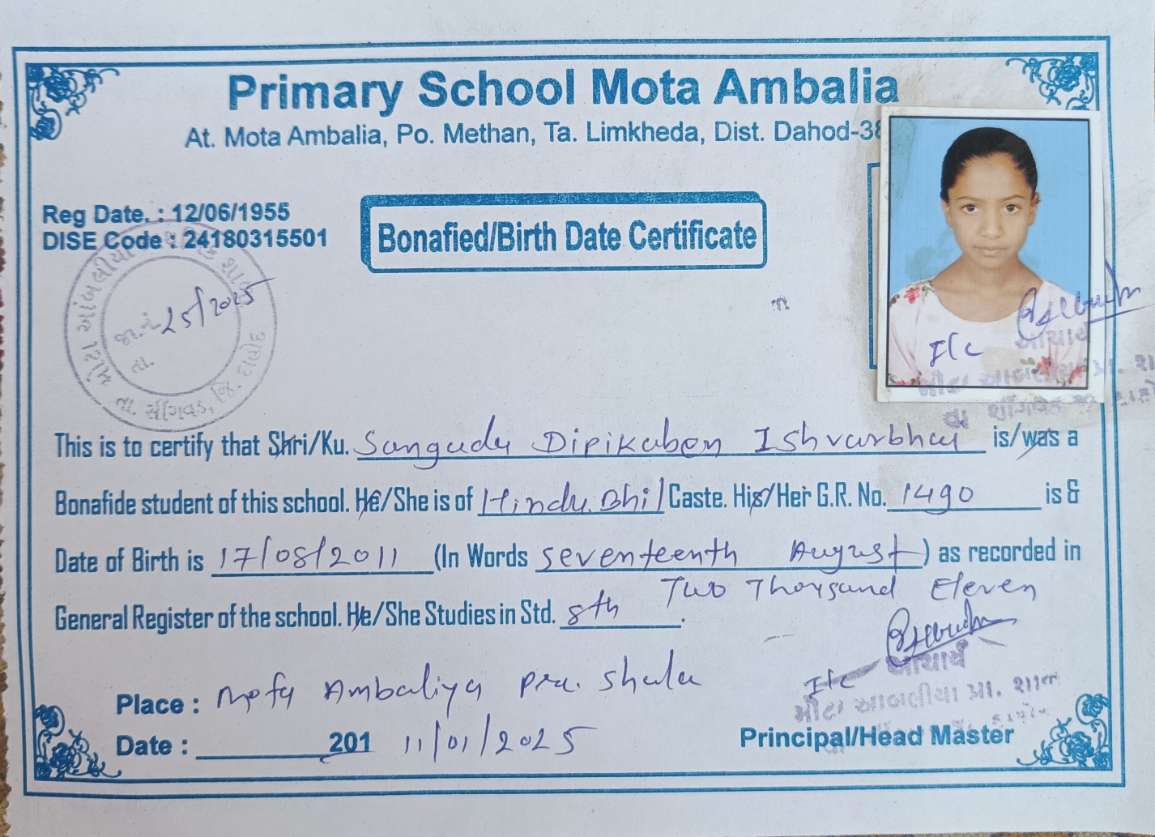 Primary School Mota Ambalia
At. Mota Ambalia, Po. Methan, Ta. Limkheda, Dist. Dahod-38
Reg Date. : 12/06/1955
DISE Code : 24180315501
Bonafied/Birth Date Certificate
જા.નં 25/2025
તા.
તા. સીંગવડ, જિ. દાહોદ
I/c
આચાર્ય
This is to certify that Shri/Ku. Sangada Dipikaben Ishvarbhai is/was a
Bonafide student of this school. He/She is of Hindu Bhil Caste. His/Her G.R. No. 1490 is &
Date of Birth is 17/08/2011 (In Words seventeenth August) as recorded in
Two Thousand Eleven
General Register of the school. He/She Studies in Std. 8th.
I/c
આચાર્ય
Place : Mota Ambaliya pra. shala
Date : 201 11/01/2025
Principal/Head Master